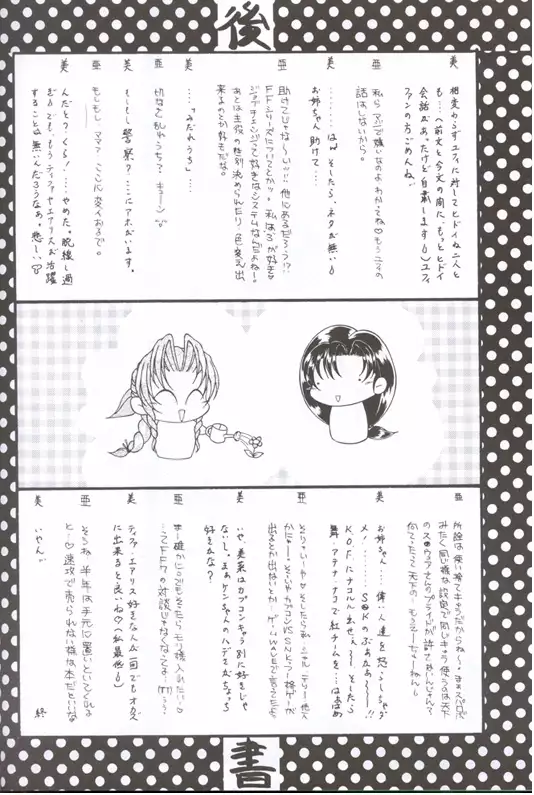 後
美 相変わらずユフィに対してヒドイね二人と
も…(前文と今文の間に、もっとヒドイ
会話があったけど自粛します)ユフィ
ファンの方ごめんね
亜 私らマジで嫌いなのよわかってね♡もうユフィの
話はしないから。
美 ………はっ、そしたら、ネタが無い
お姉ちゃん助けて…
亜 助けてじゃな〜いッ!!他にあるだろっ!?
FFシリーズについてとかッ。私は5が好き
ジョブチェンジって好きなシステムなんだよねー。
あとは主役の性別決められたり!色変え出
来るのとか好もだな。
美 …「みだれうち」…
亜 切なく乱れうち?キューン
美 もしもし警察?ここにアホがいます。
亜 もしもしママ?ここに変人おるで。
美 んだとのくら!…やめた。脱線し過
ぎ。でも、もうティファやエアリスが活躍
することは無いんだろうなぁ。悲しい
亜 所詮は使い捨てキャラだからね〜。まあスパロボ
みたく同じ様な設定で同じキャラ使うのは天下
のス●ウェアさんのプライドが許さないんじゃん?
何てったって天下の…もうええっちゅーねん
美 お姉ちゃん…偉い人達を怒らしちゃダ
メ!……S●Kのぶぁかぁ〜ー!!
K.O.Fにナコルル出せぇ〜そしたら
舞・アテナ・ナコで紅チームを…はぁはぁ
美 いや、美菜はカプコンキャラ別に好きじゃ
ないし。まぁケンちゃんのハデさがちょっち
好きかな?
亜 …ってFF7の対談じゃなくなってるー
美 ティファ・エアリス好きな人が一回でもオカズ
に出来ると良いね♡(私最低)
亜 そうね、半年は手元に置いといてくれる
と…♡速攻で売られない様な本だといいな
美 いやん
終
書